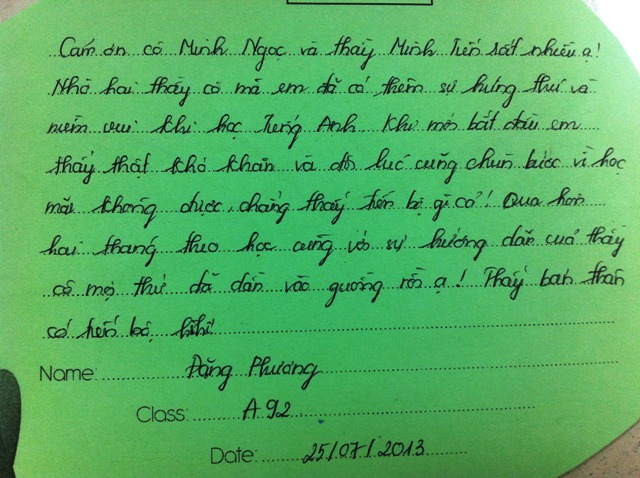 Cảm ơn cô Minh Ngọc và thầy Minh Tiến rất nhiều ạ!
Nhờ hai thầy cô mà em đã có thêm sự hứng thú và
niềm vui khi học Tiếng Anh. Khi mới bắt đầu em
thấy thật khó khăn và đôi lúc cũng chùn bước vì học
mãi không được, chẳng thấy tiến bộ gì cả! Qua hơn
hai tháng theo học cùng với sự hướng dẫn của thầy
cô mọi thứ đã dần vào guồng rồi ạ! Thấy bản thân
có tiến bộ, hihi
Name: Đặng Phương
Class: A92
Date: 25/07/2013